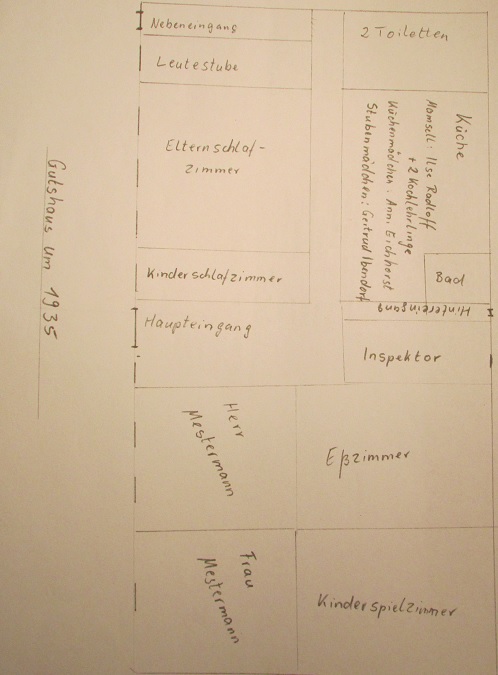 Gutshaus um 1935
Nebeneingang
2 Toiletten
Leutestube
Elternschlaf-
zimmer
Küche
Mamsell: Ilse Radloff
+ 2 Kochlehrlinge
Küchenmädchen: Ann. Eichhorst
Stubenmädchen: Gertrud Ibendorf
Bad
Kinderschlafzimmer
Hintereingang
Haupteingang
Inspektor
Herr
Mestermann
Eßzimmer
Frau
Mestermann
Kinderspielzimmer